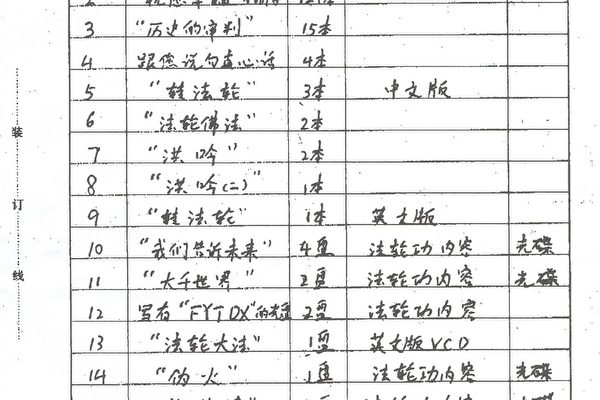 装
订
线
3 "历史的审判" 15本
4 跟您说句真心话 4本
5 "转法轮" 3本 中文版
6 "法轮佛法" 2本
7 "洪吟" 2本
8 "洪吟(二)" 1本
9 "转法轮" 1本 英文版
10 "我们告诉未来" 4盒 法轮功内容 光碟
11 "大千世界" 2盒 法轮功内容 光碟
12 写有"FYTDX"的光盘 2盒 法轮功内容
13 "法轮大法" 1盒 英文版VCD
14 "伪火" 1盒 法轮功内容 光碟